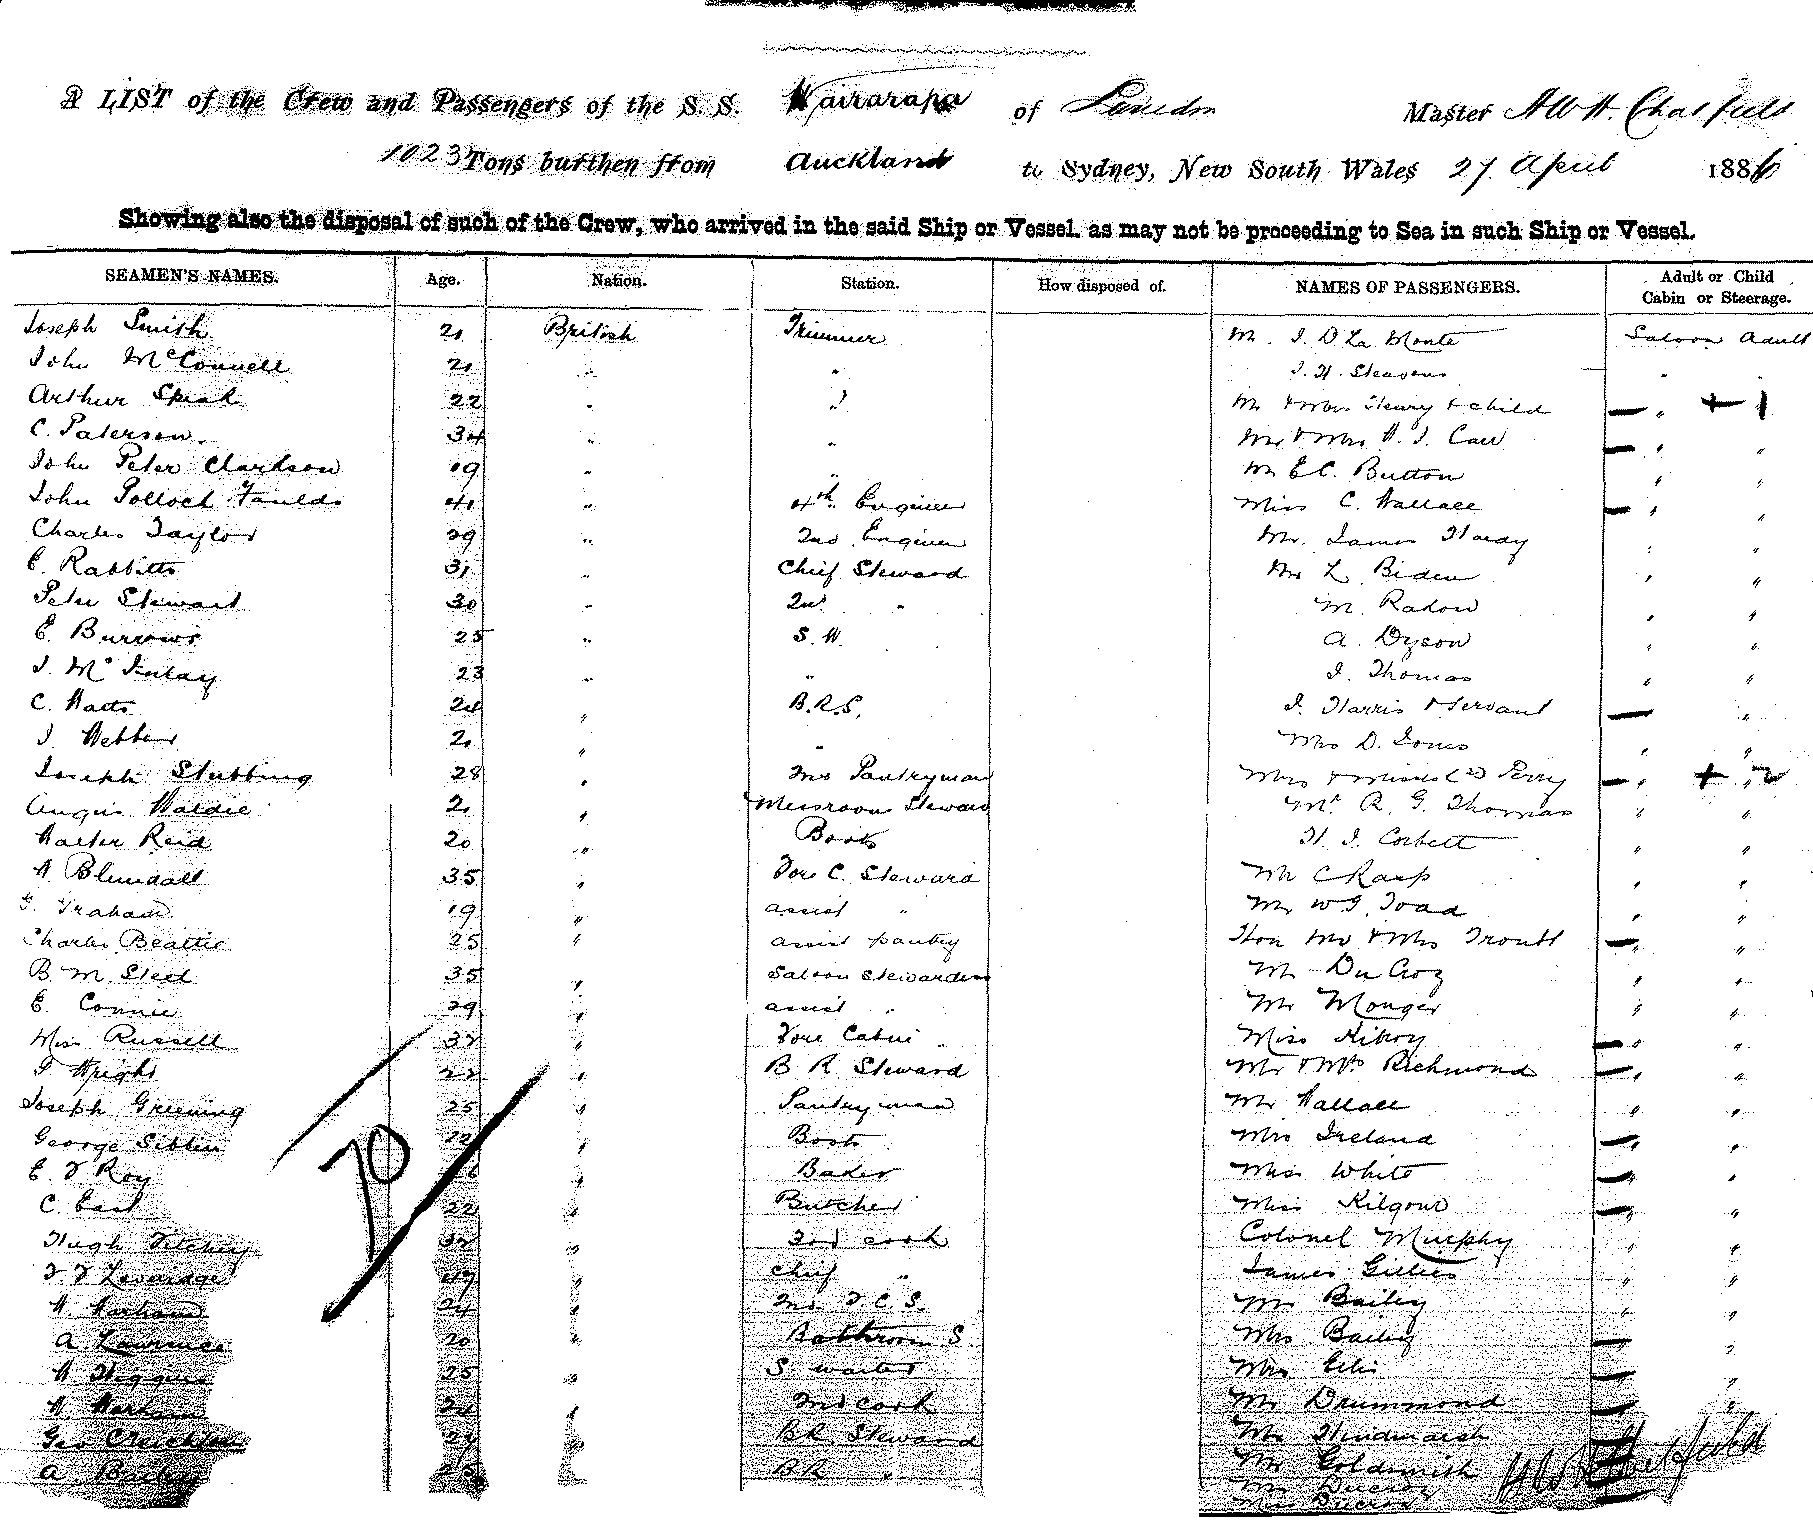 A LIST of the Crew and Passengers of the S. S. Wairarapa of London Master A W H. Chatfield
1023 Tons burthen from Auckland to Sydney, New South Wales 27 April 1886
Showing also the disposal of such of the Crew, who arrived in the said Ship or Vessel, as may not be proceeding to Sea in such Ship or Vessel.
SEAMEN'S NAMES. Age. Nation. Station. How disposed of. NAMES OF PASSENGERS. Adult or Child Cabin or Steerage.
Joseph Smith 21 British Trimmer Mr. J. D La Monte Saloon Adult
John McConnell 21 " " J. H. Steavens " "
Arthur 22 " " Mr & Mrs Henry & child " + 1
C. Paterson 34 " " Mr & Mrs A. J. Carr " "
John Peter Clarkson 19 " " Mr E C. Button " "
John Pollock Faulds 41 " 4th Engineer Miss C. Wallace " "
Charles Taylor 29 " 2nd Engineer Mr. James Hardy " "
E. Rabbitts 31 " Chief Steward Mr L. Biden " "
Peter Stewart 30 " 2nd " M. Radow " "
E. Burrows 25 " S. W. A. Dyson " "
J. McKinlay 23 " " J. Thomas " "
C. Watts 24 " B.R.S. J. Harris & Servant "
J. Webber 21 " " Mrs D. Jones " "
Joseph Stubbing 28 " 2nd Pantryman Mrs & Misses (2) Perry " + 2
Angus Waldie 21 " Messroom Steward Mr R. G. Thomas " "
Walter Reid 20 " Boots H. J. Corbett " "
W Blundall 35 " Fore C. Steward Mr C Rasp " "
G. Graham 19 " assist " Mr W. J. Toad " "
Charles Beattie 25 " assist pantry Hon Mr & Mrs " "
B. M. Steel 35 " Saloon Stewardess Mr Du Croz " "
E. Connie 29 " assist " Mr Monger " "
Miss Russell 32 " Fore Cabin " Miss Kilroy " "
J Wright 22 " B R Steward Mr & Mrs Richmond " "
Joseph Greening 25 " Pantryman Mr Wallace " "
George Sibbin 22 " Boots Mrs Ireland " "
E F Roy " Baker Miss White " "
C. East 22 " Butcher Miss Kilgour " "
70
Hugh 32 " 3rd cook Colonel Murphy " "
Levardge 47 " Chief " James Gillies " "
W. 24 " 2nd F C S. Mr Bailey " "
A. Lawrence 20 " Bathroom S. Mrs Bailey "
W Higgins 25 " S waiter Mrs Ellis "
W 24 " 2nd cook Mr Drummond "
Geo Creichton 24 " B.R. Steward Mr Hindmarsh
A. Bailey 25 B R " Mr Goldsmith